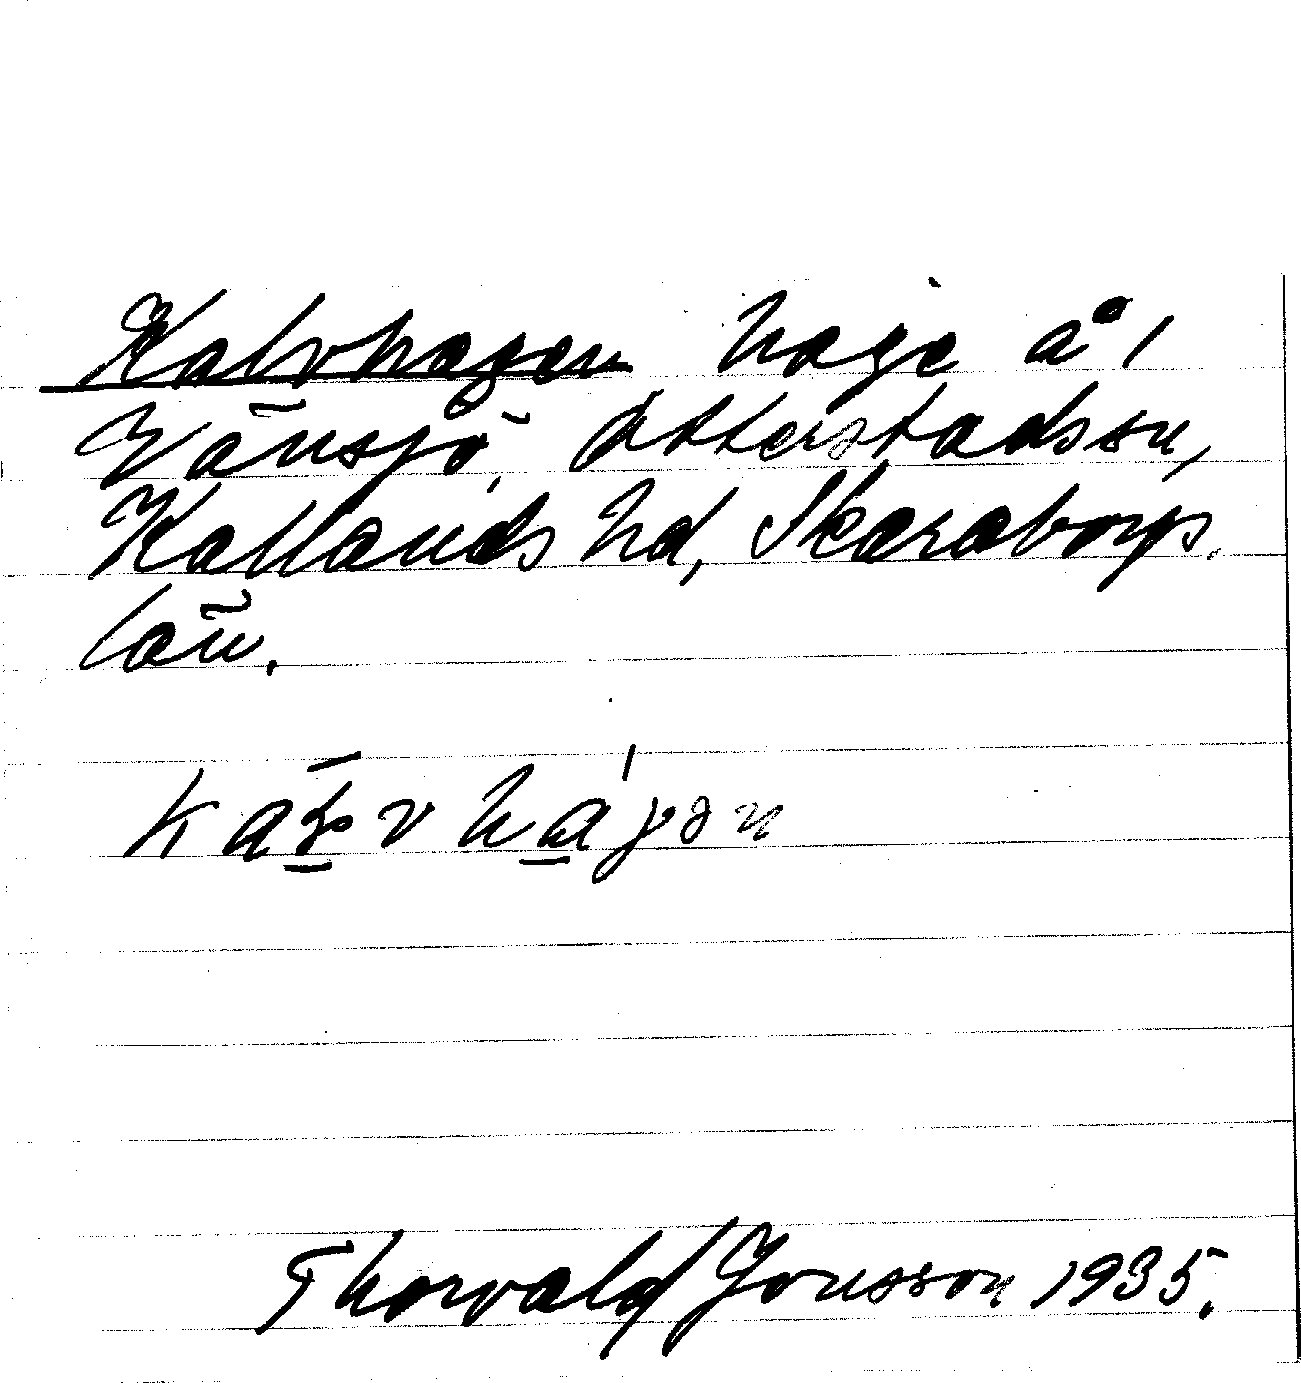 Kalvhagen hage å 1
Vänsjö, Otterstadssn,
Kallands hd, Skaraborgs.
län.
Thorvald Jonsson 1935.